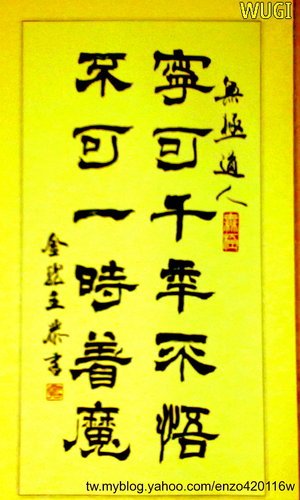 WUGI
無極道人
寧可千年不悟
不可一時着魔
金龍主恭書
tw.myblog.yahoo.com/enzo420116w